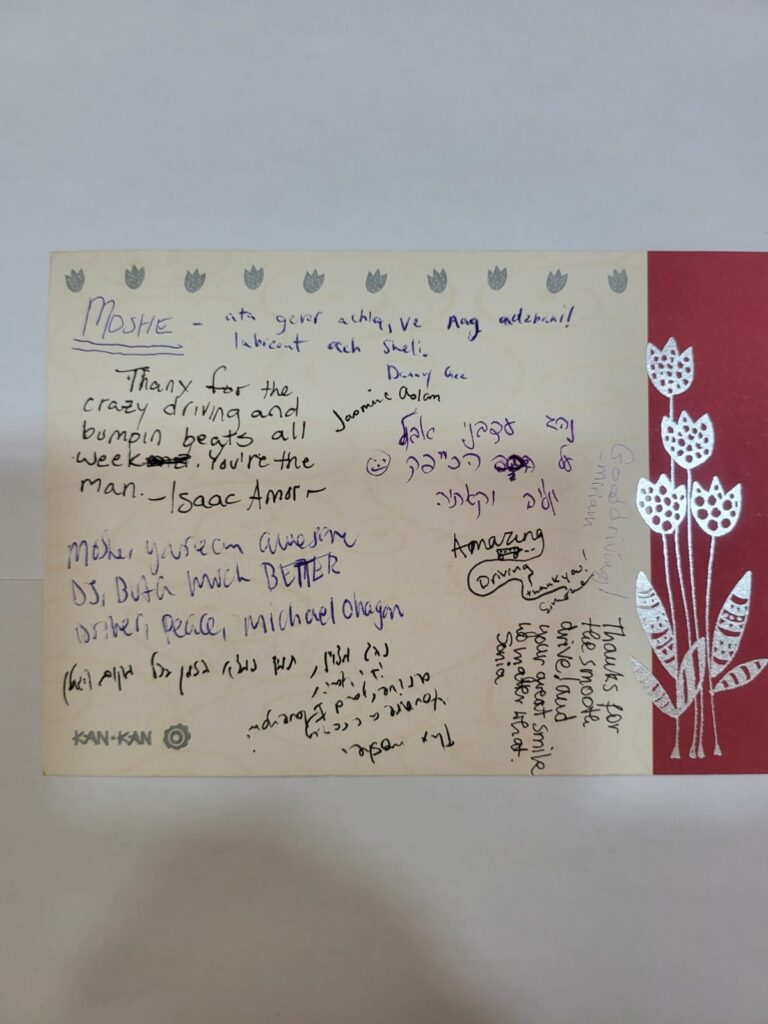 MOSHE - ata gever achla, ve nag
sheli.
Danny Gee
Thanx for the
crazy driving and
bumpin beats all
week. You're the
man. -Isaac Amor-
Jasmine
נהג עצבני אבל
על הכיפק
Good driving!
-miriam
Moshe, you're an awesome
DJ, But a much BETTER
Driver, Peace, Michael Ohagon
Amazing
Driving
thank you!
Thanks for
the smooth
drive! and
your great smile
no matter what.
Sonia
נהג מצוין, תמיד בזמן בכל מקום
Thx moshe.
You are a
KAN·KAN